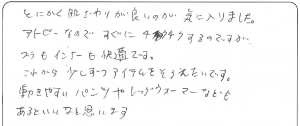 とにかく肌ざわりが良いのが気に入りました。
アトピーなので すぐに チクチクするのですが、
ブラもインナーも快適です。
これから少しずつアイテムをそろえたいです。
動きやすい パンツや レッグウォーマー なども
あるといいなと思います